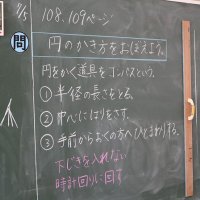 7/5 108.109ページ
問
円のかき方をおぼえよう。
円をかく道具をコンパスという。
① 半径の長さをとる。
② 中心にはりをさす。
③ 手前からおくの方へひとまわりする。
下じきを入れない
時計回りに回す